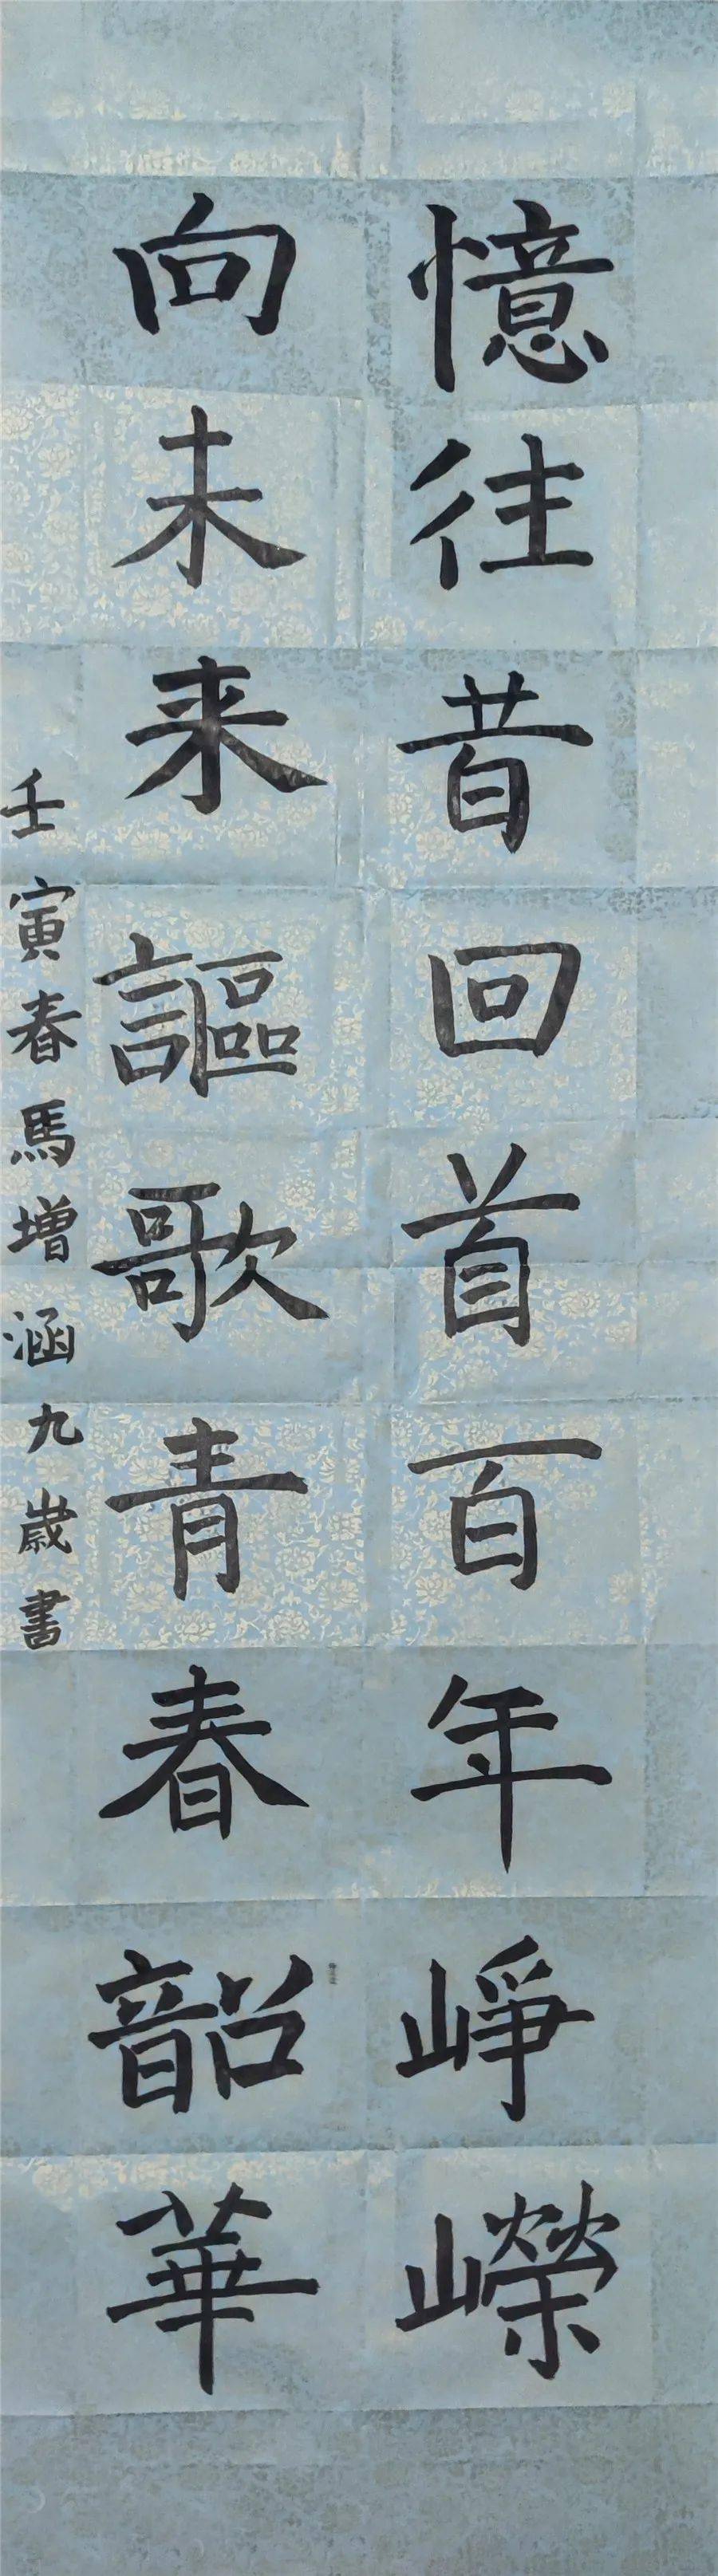 憶往昔回首百年崢嶸
向未来謳歌青春韶華
壬寅春馬增涵九歲書